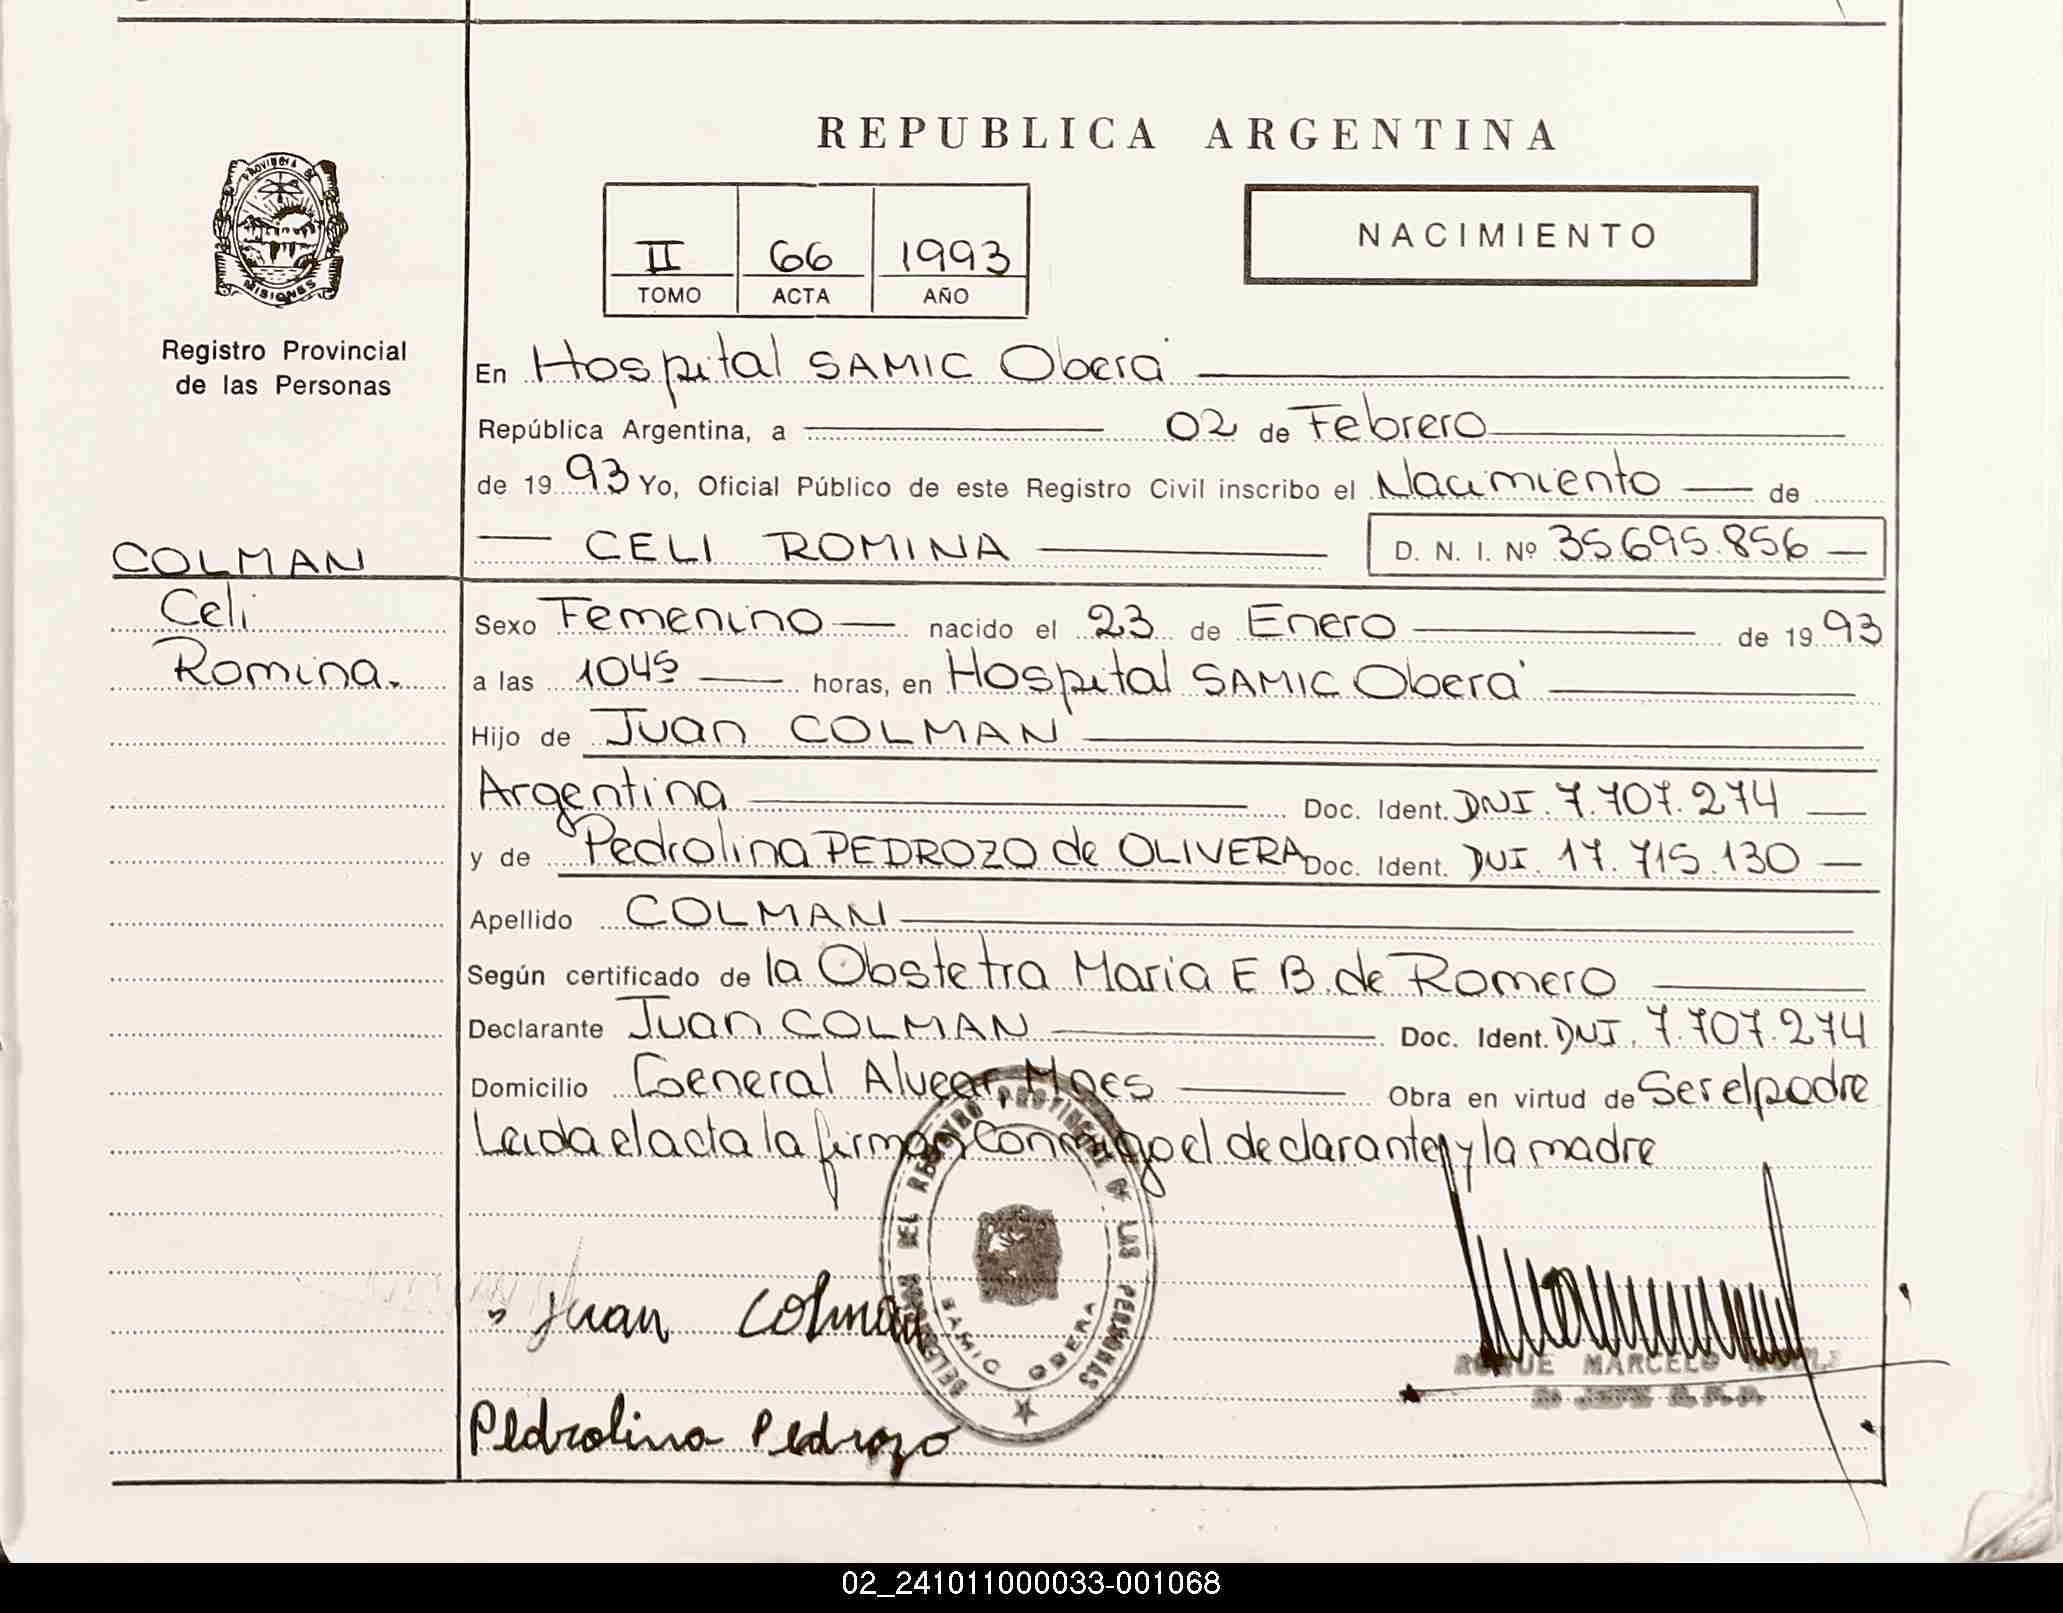 REPUBLICA ARGENTINA
PROVINCIA DE
MISIONES
Registro Provincial
de las Personas
II 66 1993
TOMO ACTA AÑO
NACIMIENTO
En Hospital SAMIC Oberá
República Argentina, a 02 de Febrero
de 1993 Yo, Oficial Público de este Registro Civil inscribo el Nacimiento de
CELI ROMINA D. N. I. Nº 35.695.856
COLMAN
Celi
Romina.
Sexo Femenino nacido el 23 de Enero de 1993
a las 1045 horas, en Hospital SAMIC Oberá
Hijo de Juan COLMAN
Argentina Doc. Ident. DNI. 7.707.274
y de Pedrolina PEDROZO de OLIVERA Doc. Ident. DNI. 17.715.130
Apellido COLMAN
Según certificado de la Obstetra Maria E B. de Romero
Declarante Juan COLMAN Doc. Ident. DNI. 7.707.274
Domicilio General Alvear Mnes Obra en virtud de Ser el padre
Leida el acta la firman conmigo el declarante y la madre
DEL REGISTRO PROVINCIAL DE LAS PERSONAS
SAMIC OBERA
Juan Colman
Pedrolina Pedrozo
ROQUE MARCELO
02_241011000033-001068